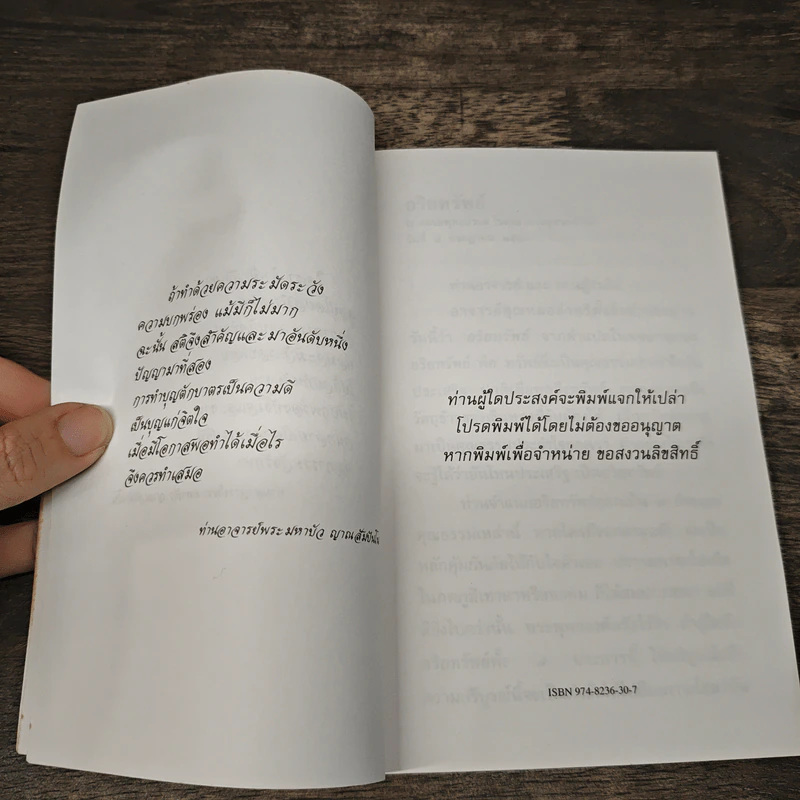 ถ้าทำด้วยความระมัดระวัง
ความบกพร่อง แม้มีก็ไม่มาก
ฉะนั้น สติจึงสำคัญและมาอันดับหนึ่ง
ปัญญามาที่สอง
การทำบุญตักบาตรเป็นความดี
เป็นบุญแก่จิตใจ
เมื่อมีโอกาสพอทำได้เมื่อไร
จึงควรทำเสมอ
ท่านอาจารย์พระมหาบัว ญาณสัมปันโน
ท่านผู้ใดประสงค์จะพิมพ์แจกให้เปล่า
โปรดพิมพ์ได้โดยไม่ต้องขออนุญาต
หากพิมพ์เพื่อจำหน่าย ขอสงวนลิขสิทธิ์
ISBN 974-8236-30-7